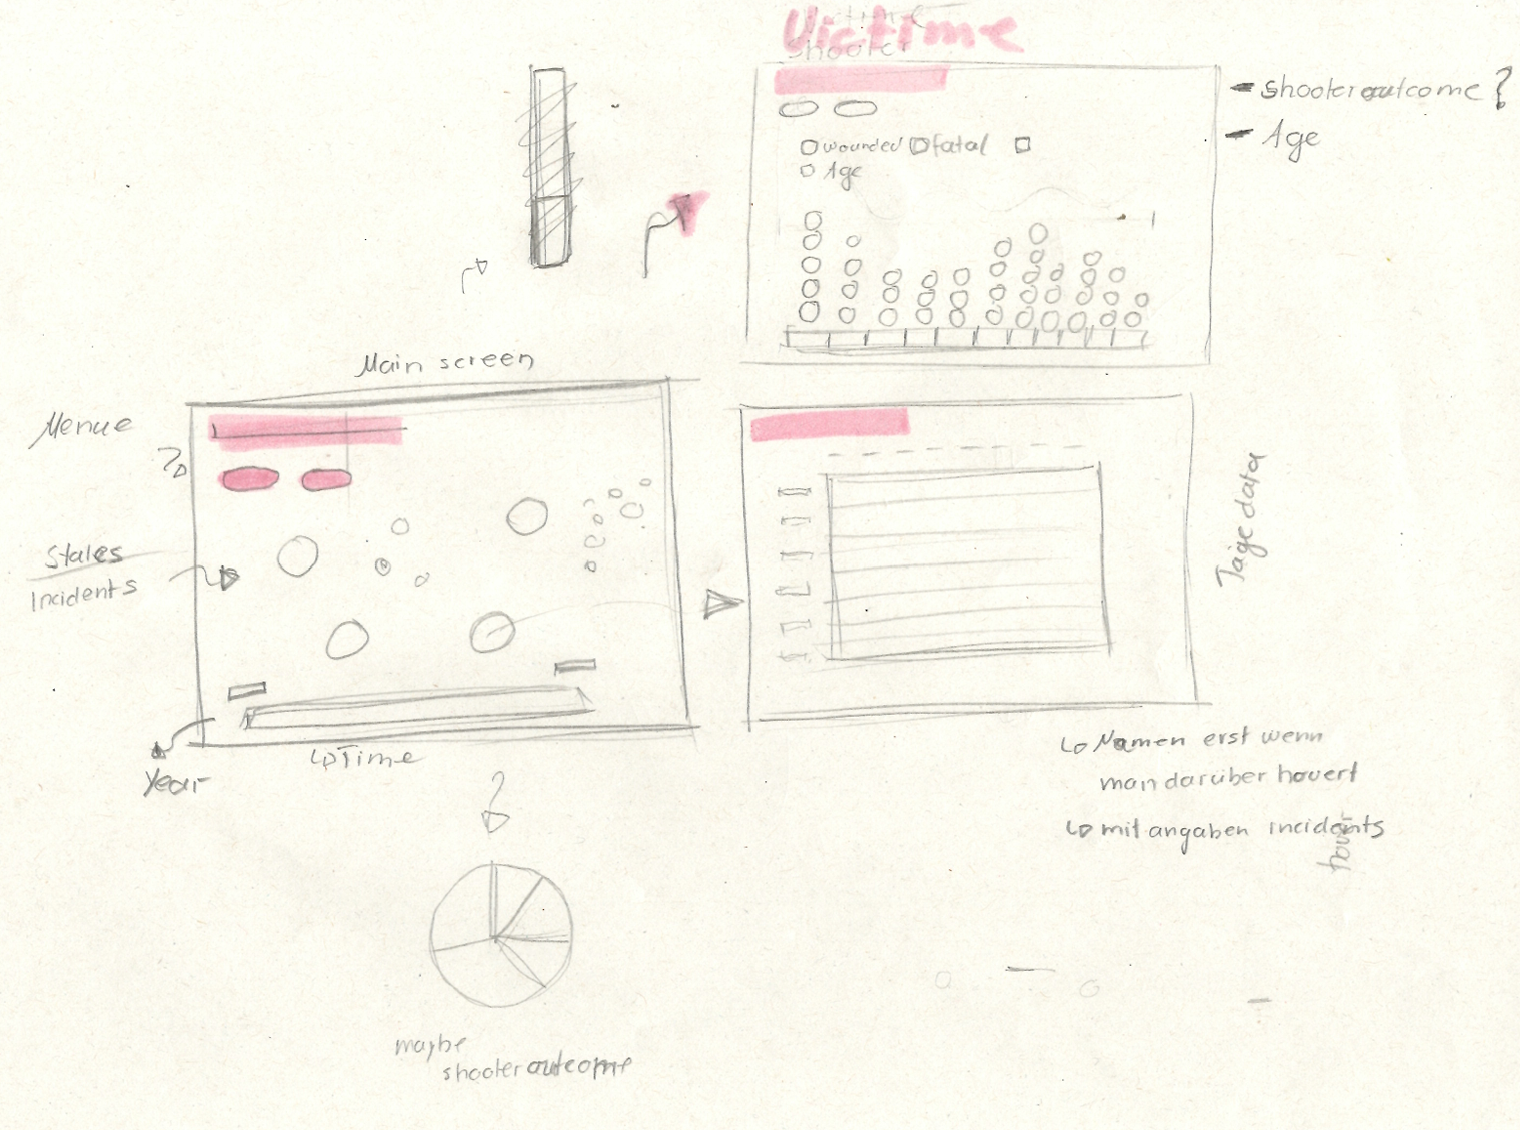 Victime
Shooter
- Shooter outcome ?
- Age
wounded fatal
Age
Main screen
Menue
States
Incidents
Year
Time
Tage data
Namen erst wenn
man darüber hovert
mit angaben incidents
hover
maybe
shooter outcome